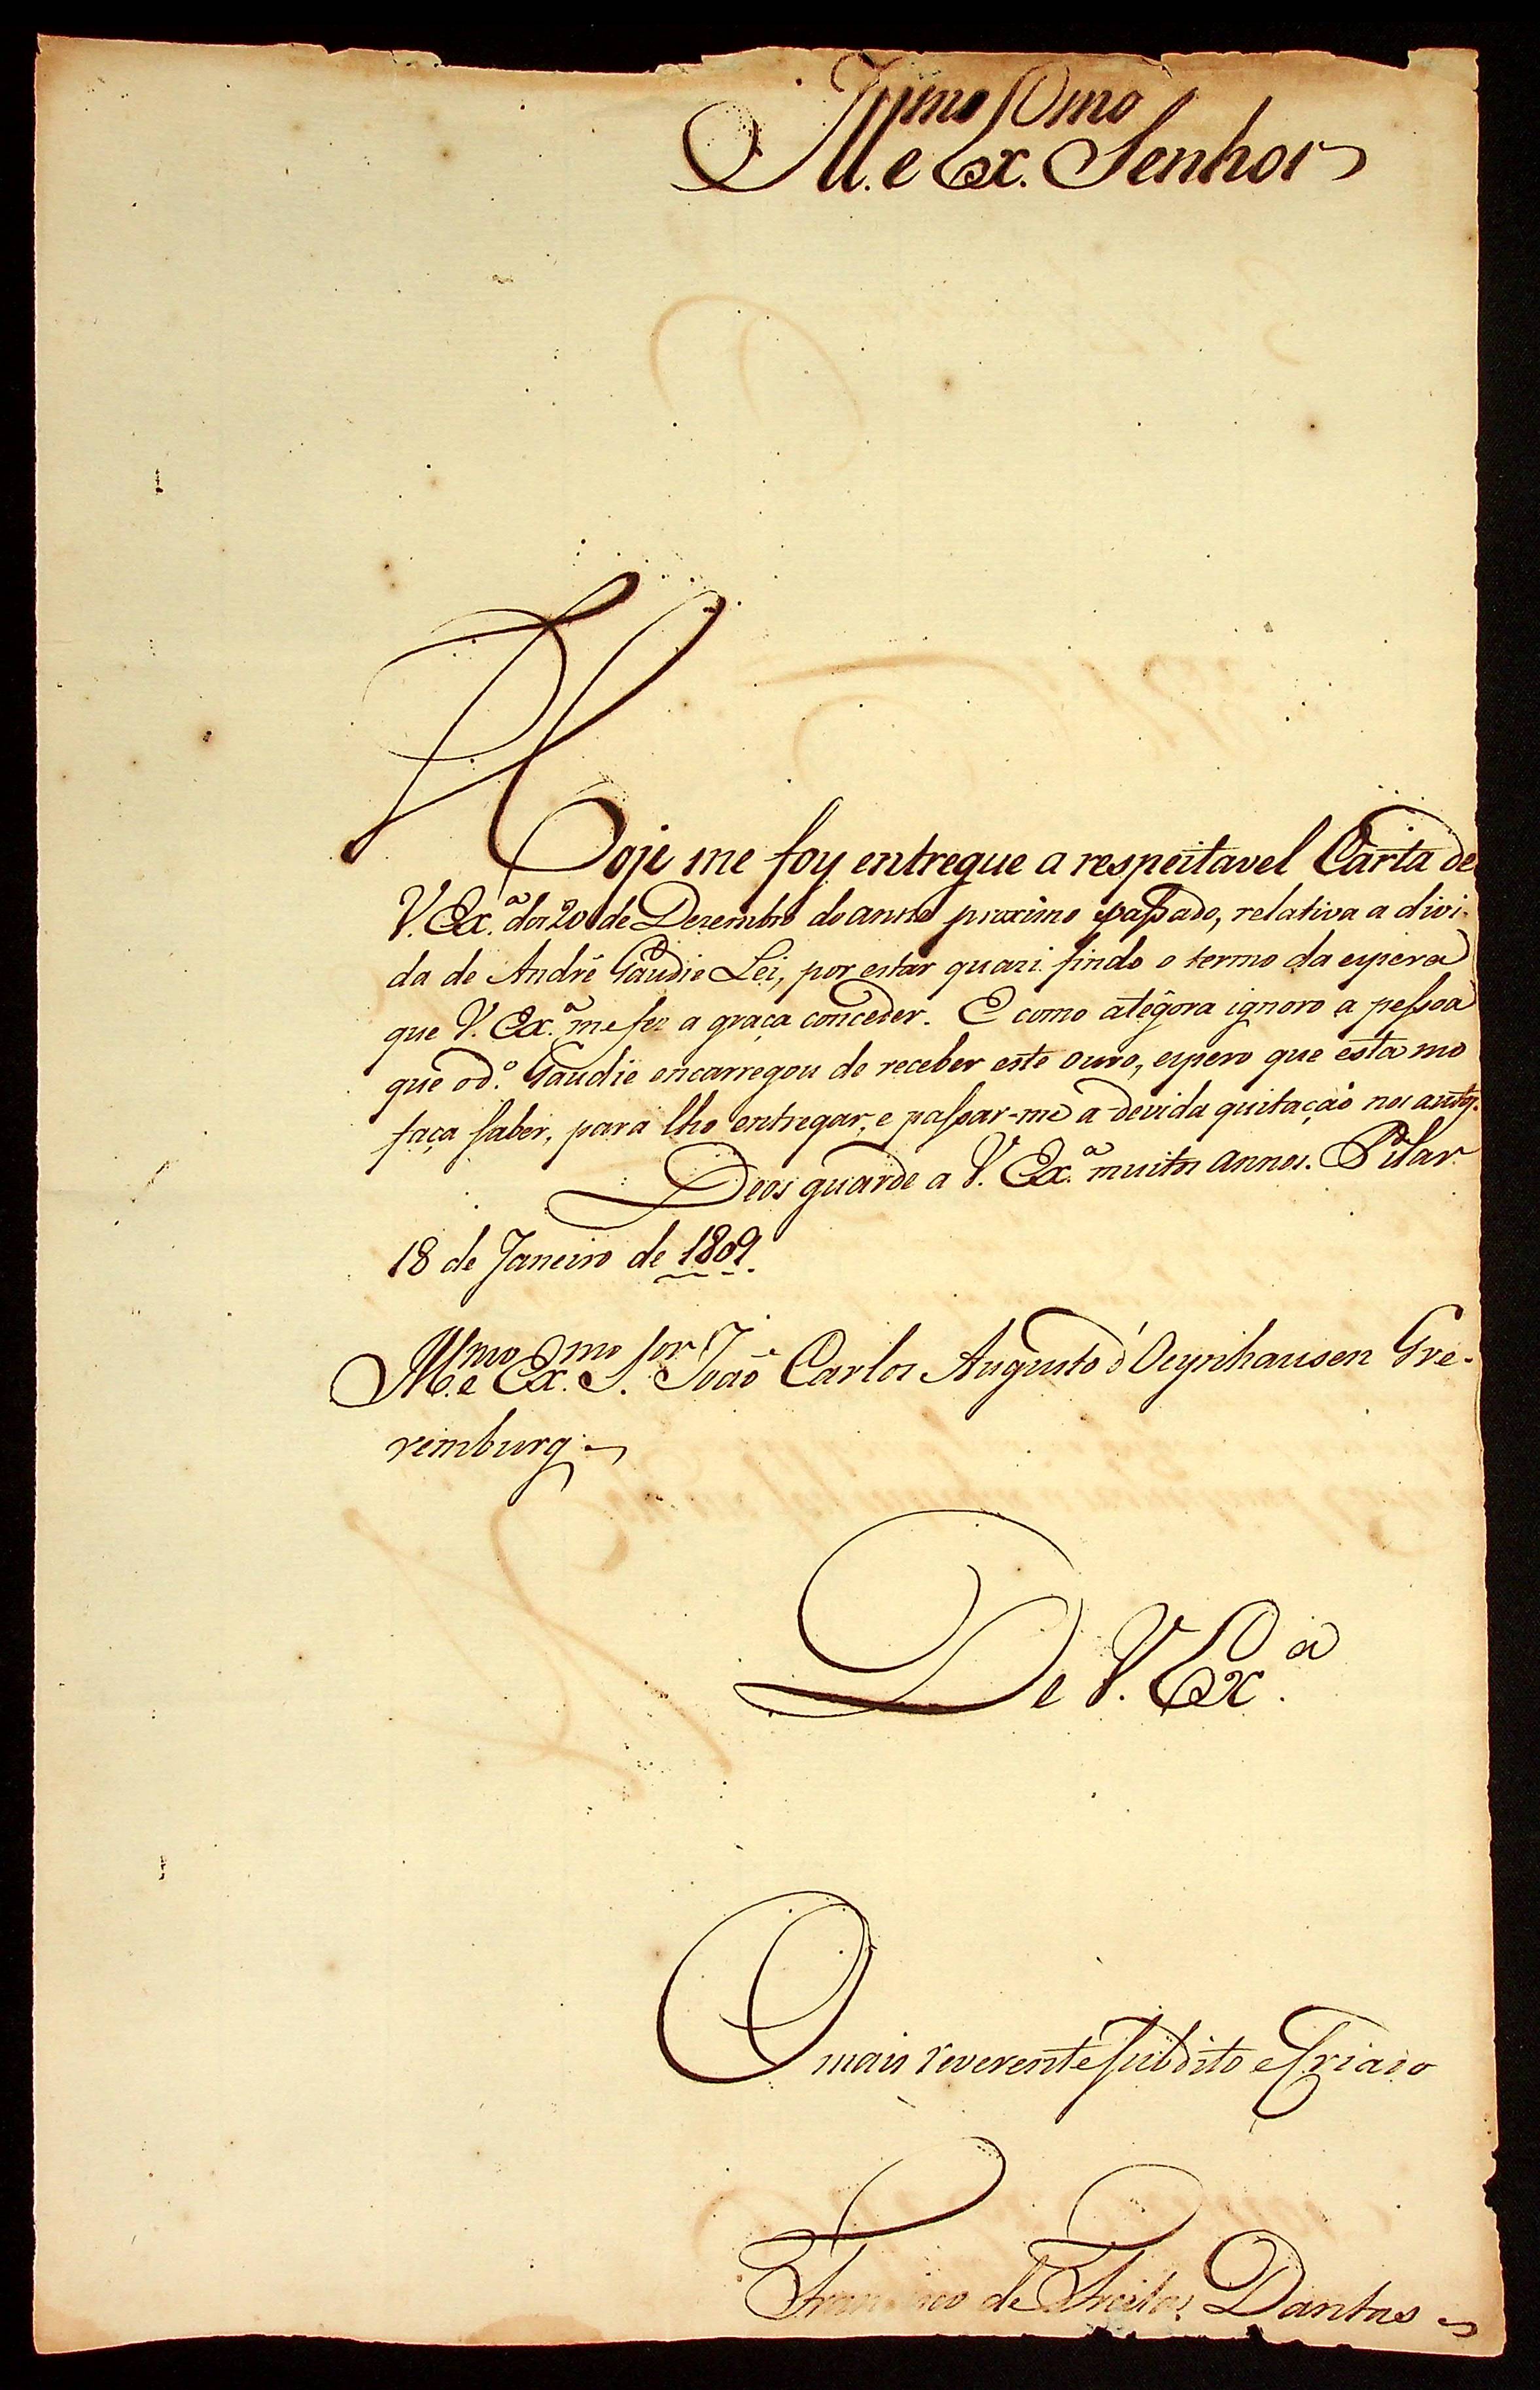 Ill.mo e Ex.mo Senhor
Hoje me foy entregue a respeitavel Carta de
V. Ex.a de 20 de Dezembro do anno proximo passado, relativa a divi-
da de André Gaudie Lei, por estar quazi findo o termo da espera
que V. Ex.a me fez a graça conceder. E como atégora ignoro a pessoa
que o d.o Gaudie encarregou de receber este ouro, espero que esta mo
faça saber, para lho entregar, e passar-me a devida quitação nos
Deos guarde a V. Ex.a muitos annos. Pilar
18 de Janeiro de 1809.
Ill.mo e Ex.mo S.or João Carlos Augusto d'Oeynhausen Gre-
vemburg.
De V. Ex.a
O mais reverente subdito e Criado
Francisco de Freitas Dantas